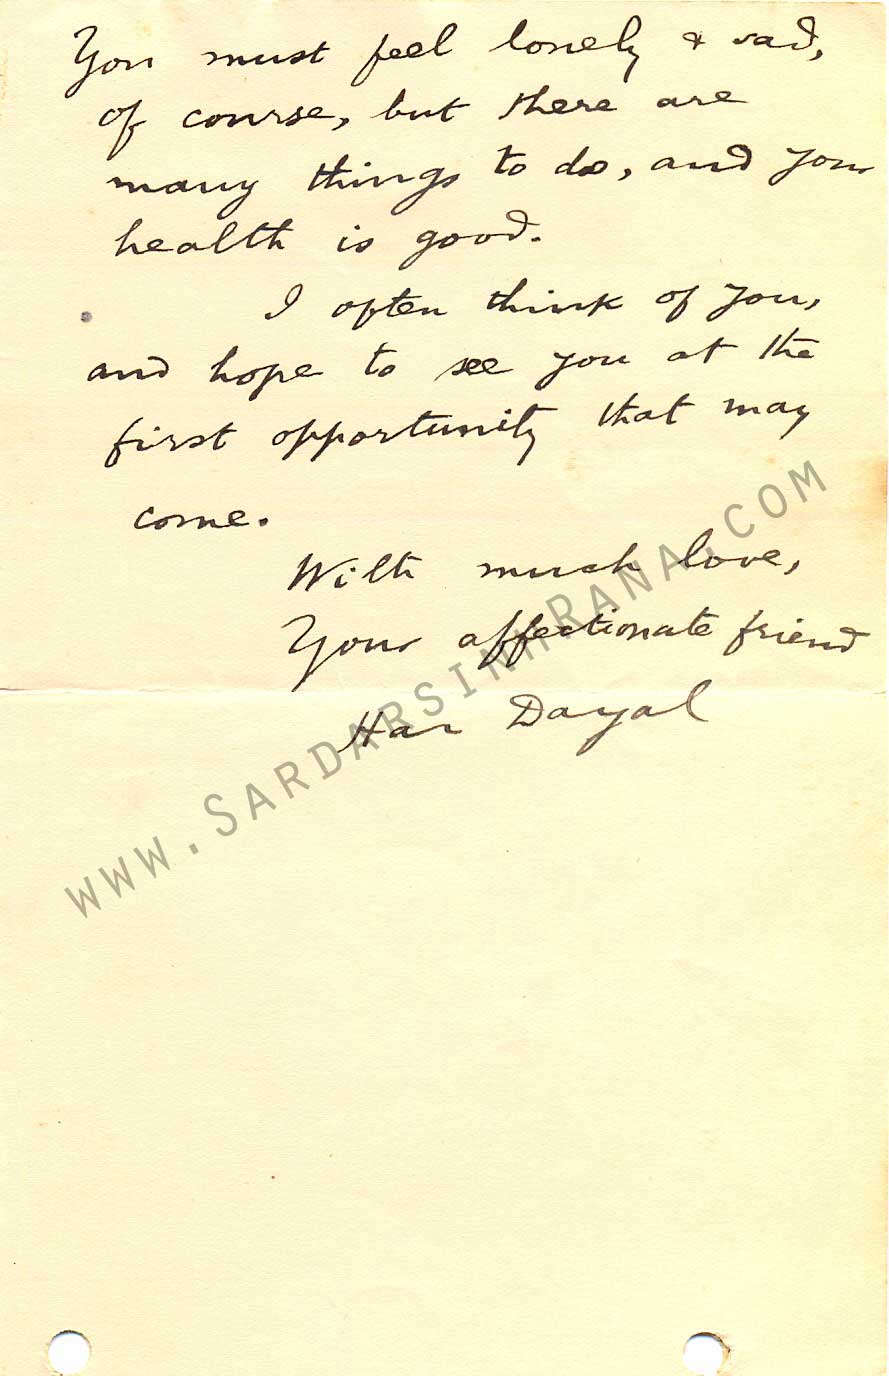 You must feel lonely & sad,
of course, but there are
many things to do, and your
health is good.
I often think of you,
and hope to see you at the
first opportunity that may
come.
With much love,
Your affectionate friend
Har Dayal
www.SardarsinhRana.com